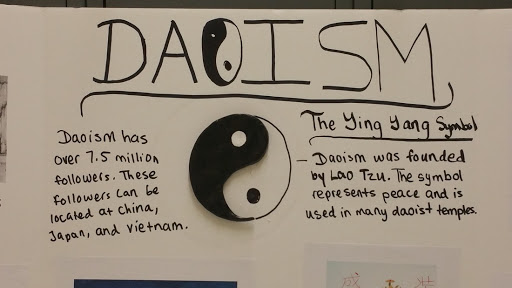 DAOISM
Daoism has
over 7.5 million
followers. These
followers can be
located at China,
Japan, and Vietnam.
The Ying Yang Symbol
– Daoism was founded
by Lao Tzu. The symbol
represents peace and is
used in many daoist temples.